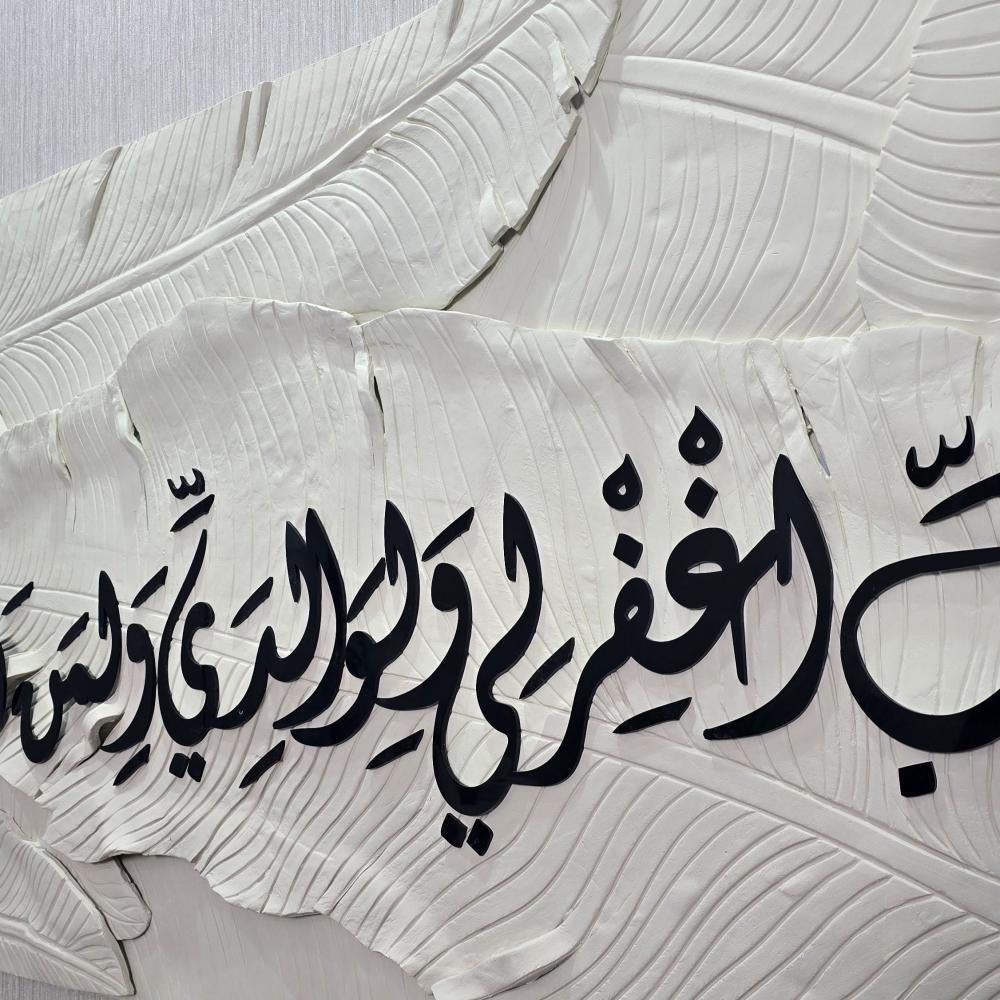 بِّ اغْفِرْ لِي وَلِوَالِدَيَّ